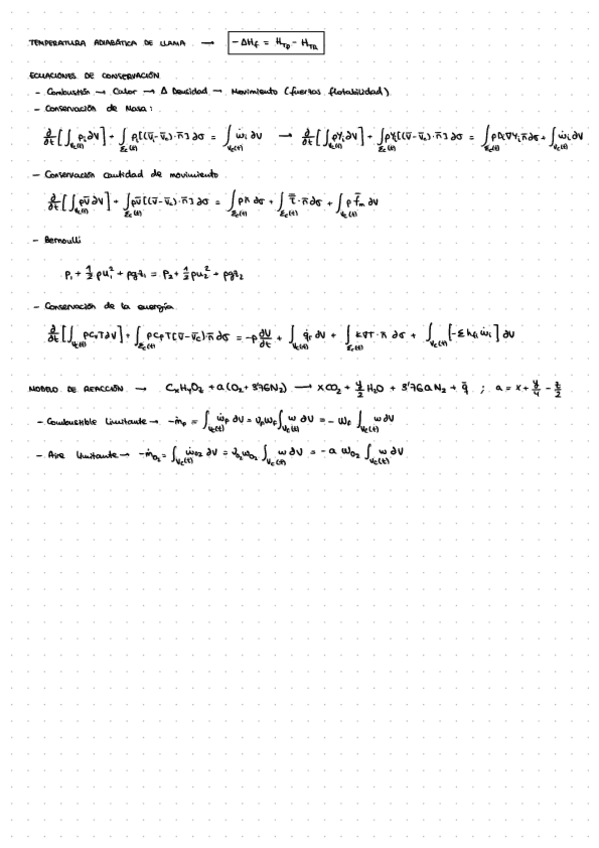 TEMPERATURA ADIABÁTICA DE LLAMA → -ΔH_f = H_Tp - H_TR
ECUACIONES DE CONSERVACIÓN
- Combustión → Calor → Δ Densidad → Movimiento (fuertas flotabilidad)
- Conservación de Masa:
∂/∂t [∫_Vc(t) ρ_i ∂V] + ∫_Σc(t) ρ_i [(v̄_i - v̄_c)·n̄] ∂σ = ∫_Vc(t) ẇ_i ∂V → ∂/∂t [∫_Vc(t) ρY_i ∂V] + ∫_Σc(t) ρY_i [(v̄ - v̄_c)·n̄] ∂σ = ∫_Σc(t) ρD_i ∇Y_i n̄ ∂σ + ∫_Vc(t) ẇ_i ∂V
- Conservación cantidad de movimiento
∂/∂t [∫_Vc(t) ρv̄ ∂V] + ∫_Σc(t) ρv̄ [(v̄ - v̄_c)·n̄] ∂σ = ∫_Σc(t) p n̄ ∂σ + ∫_Σc(t) τ̿·n̄ ∂σ + ∫_Vc(t) ρ f̄_m ∂V
- Bernoulli
P_1 + 1/2 ρu_1^2 + ρgz_1 = P_2 + 1/2 ρu_2^2 + ρgz_2
- Conservación de la energía
∂/∂t [∫_Vc(t) ρC_vT ∂V] + ∫_Σc(t) ρC_PT(v̄ - v̄_c)·n̄ ∂σ = -p ∂V/∂t + ∫_Vc(t) q̇_r ∂V + ∫_Σc(t) k∇T·n̄ ∂σ + ∫_Vc(t) [-Σ h_fi ẇ_i] ∂V
MODELO DE REACCIÓN → C_xH_yO_z + a(O_2 + 3'76N_2) → xCO_2 + y/2 H_2O + 3'76 a N_2 + q̄ ; a = x + y/4 - z/2
- Combustible limitante → -ṁ_F = ∫_Vc(t) ẇ_F ∂V = ν_F W_F ∫_Vc(t) w ∂V = - W_F ∫_Vc(t) w ∂V
- Aire limitante → -ṁ_O2 = ∫_Vc(t) ẇ_O2 ∂V = ν_O2 W_O2 ∫_Vc(t) w ∂V = - a W_O2 ∫_Vc(t) w ∂V